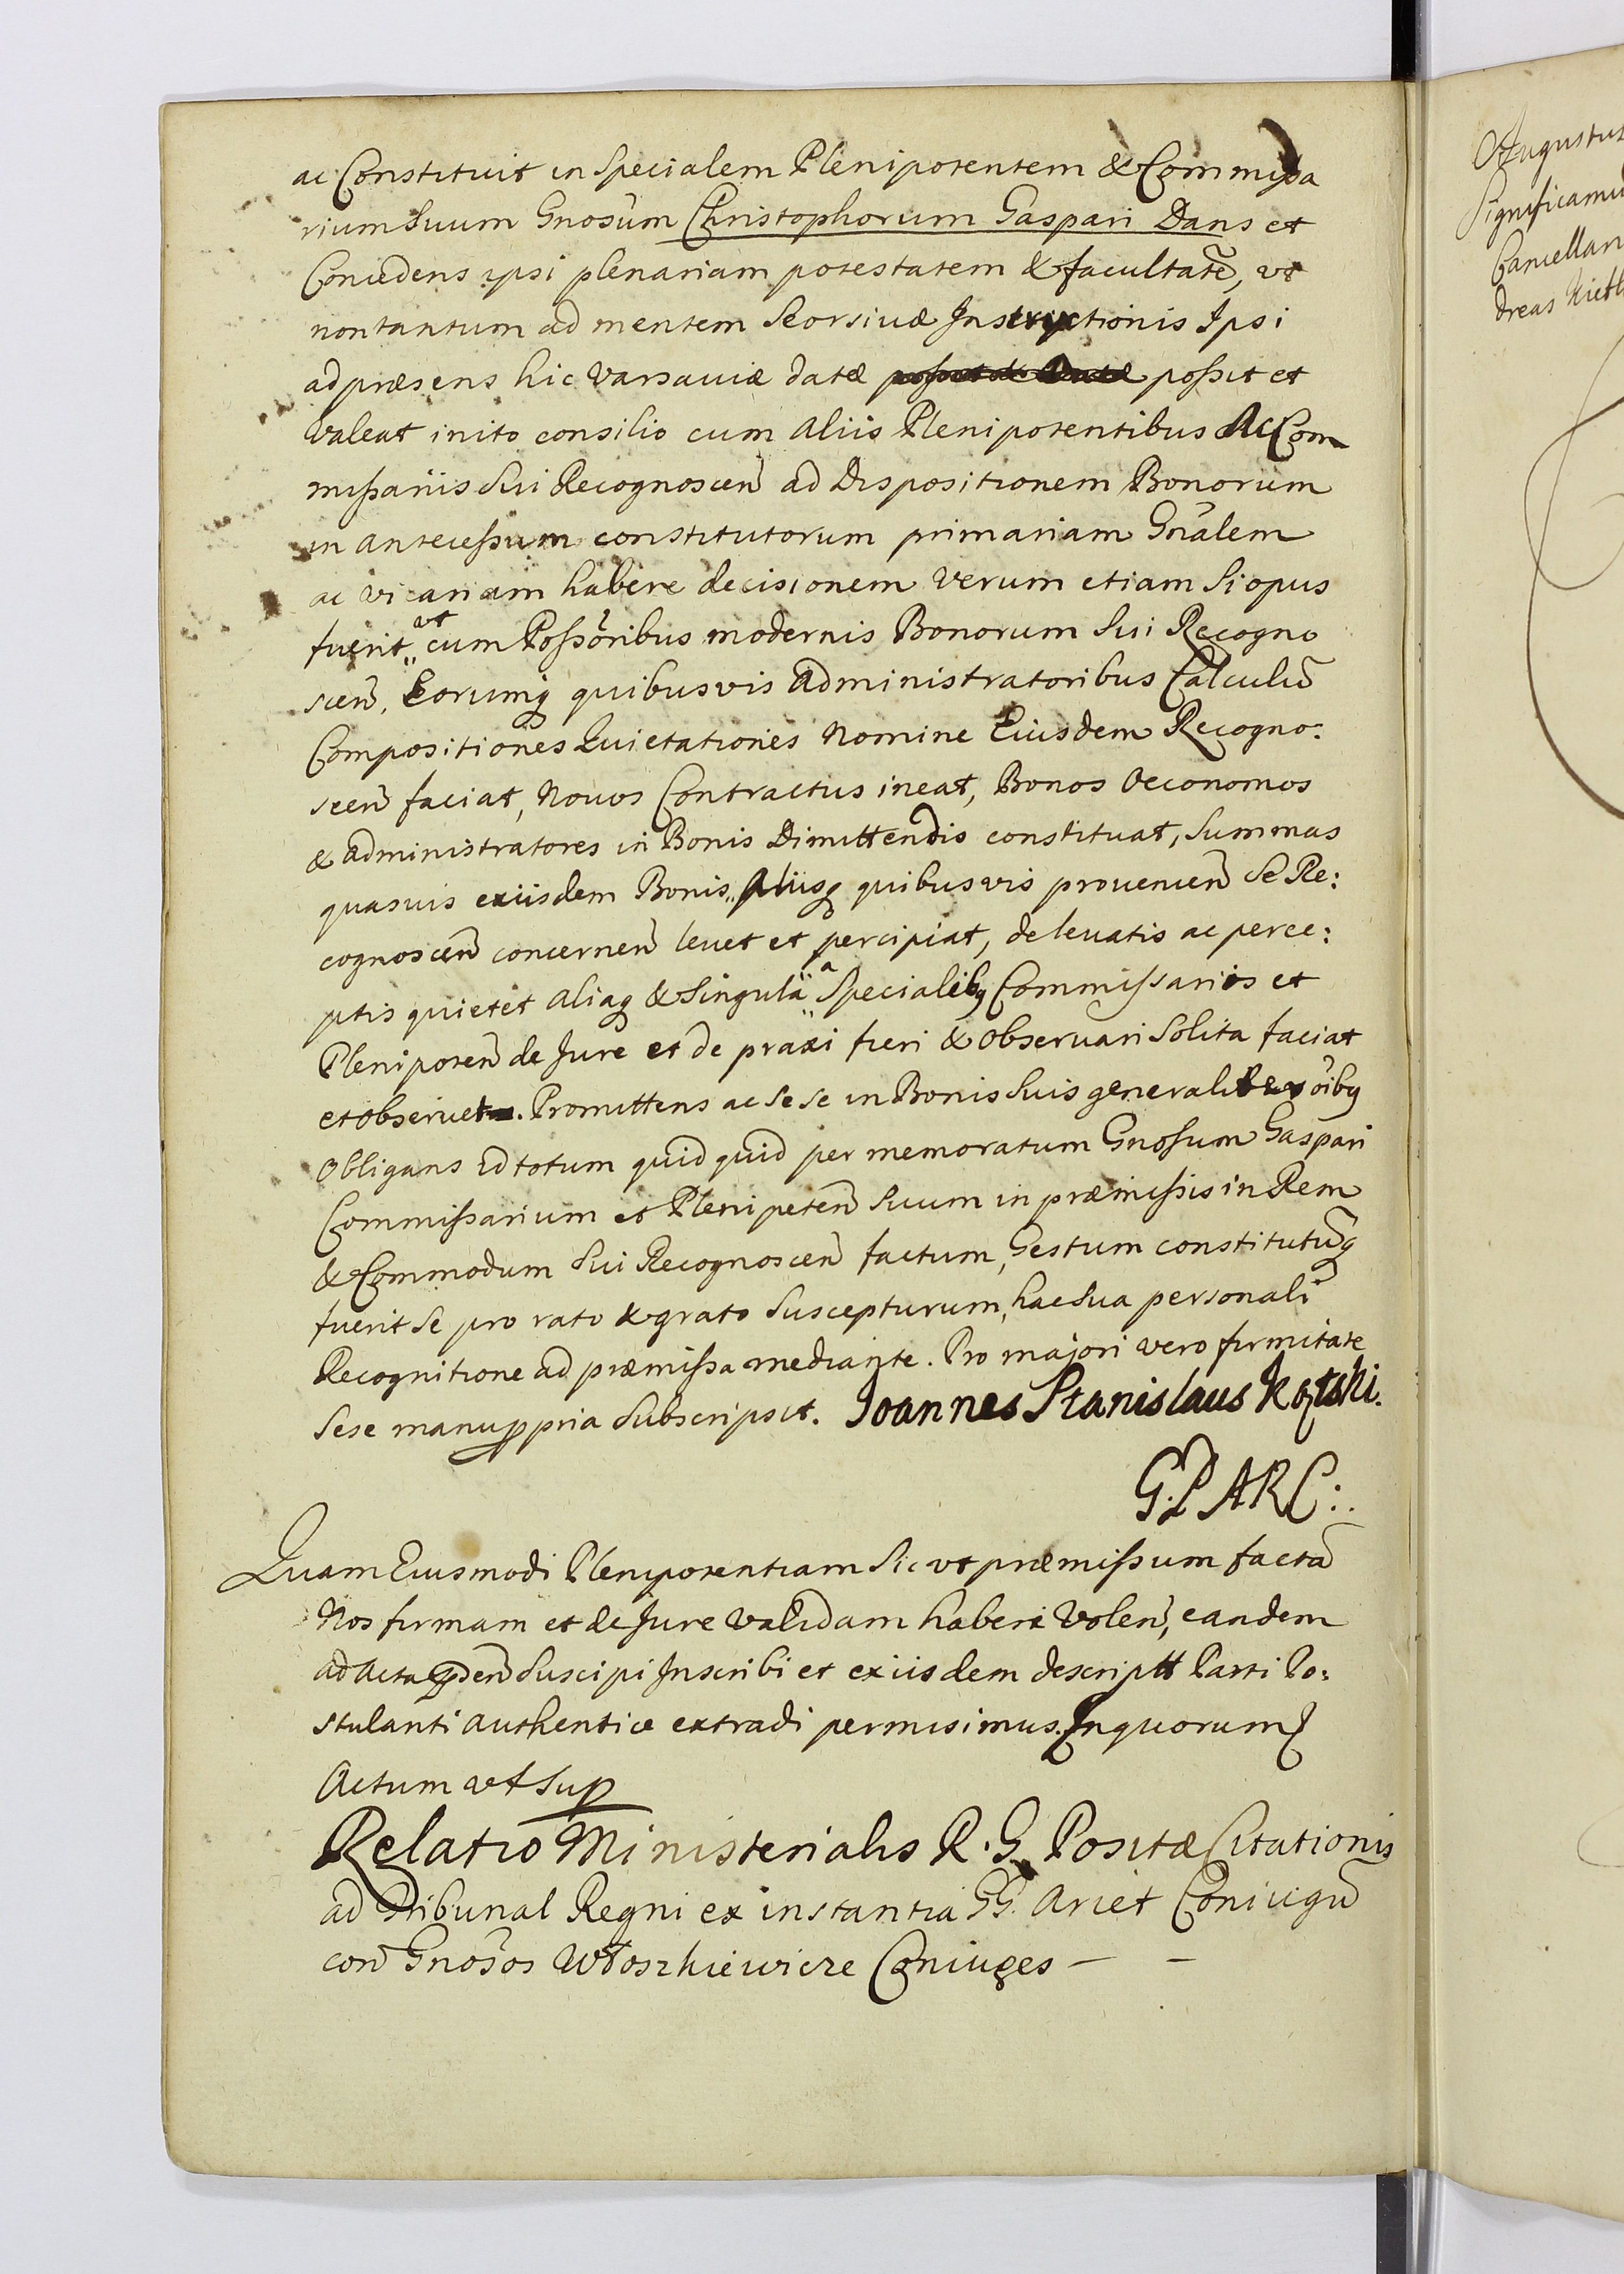 ac Constituit in Specialem Plenipotentem & Commissa
rium Suum Gnosum Christophorum Gaspari Dans et
Concedens ipsi plenariam potestatem & facultatẽ, vt
non tantum ad mentem Seorsivæ Instructionis Ipsi
ad præsens hic Varsaviæ datæ possit et
valeat inito consilio cum aliis Plenipotentibus Ac Com
missariis Sui Recognoscen̄ ad Dispositionem Bonorum
in antecessum constitutorum primariam Gnãlem
ac vicariam habere decisionem verum etiam Si opus
fuerit vt cum Possõribus modernis Bonorum Sui Recogno
scen̄, Eorumq quibusvis administratoribus Calculũ
Compositiones Quietationes Nomine Eiusdem Recogno:
scen̄ faciat, Novos Contractus ineat, Bonos Oeconomos
& administratores in Bonis Dimittendis constituat, Summas
quasvis ex iisdem Bonis, Aliisq quibusvis provenien̄ Se Re:
cognoscen̄ concernen̄ levet et percipiat, de levatis ac perce:
ptis quietet aliaq & Singula a Specialibq Commissariis et
Plenipoten̄ de Jure et de praxi fieri & observari Solita faciat
et observet. Promittens ac Se se in Bonis Suis generaliter oĩbq
Obligans id totum quid quid per memoratum Gnosum Gaspari
Commissarium et Plenipoten̄ Suum in præmissis in Rem
& Commodum Sui Recognoscen̄ factum, Gestum constitutũq
fuerit Se pro rato & grato Suscepturum, hac Sua personali
Recognitione ad præmissa mediante. Pro majori vero firmitate
Sese manu ppria Subscripsit. Joannes Stanislaus Kątski.
G.P.ARC:.
Quam Eiusmodi Plenipotentiam Sic vt præmissum factã
Nos firmam et de Jure validam haberi volen̄, eandem
ad Acta pden̄ Suscipi Inscribi et ex iisdem descriptt Parti Po:
stulanti authentice extradi permisimus. In quorum
Actum vt Sup
Relatio Ministerialis R.G. Positæ Citationis
ad Tribunal Regni ex instantia GG. Ariet Coniugũ
con̄ Gnosos Włoszkiewicze Coniuges — —
Augustus
Significamus
Cancellari
dreas